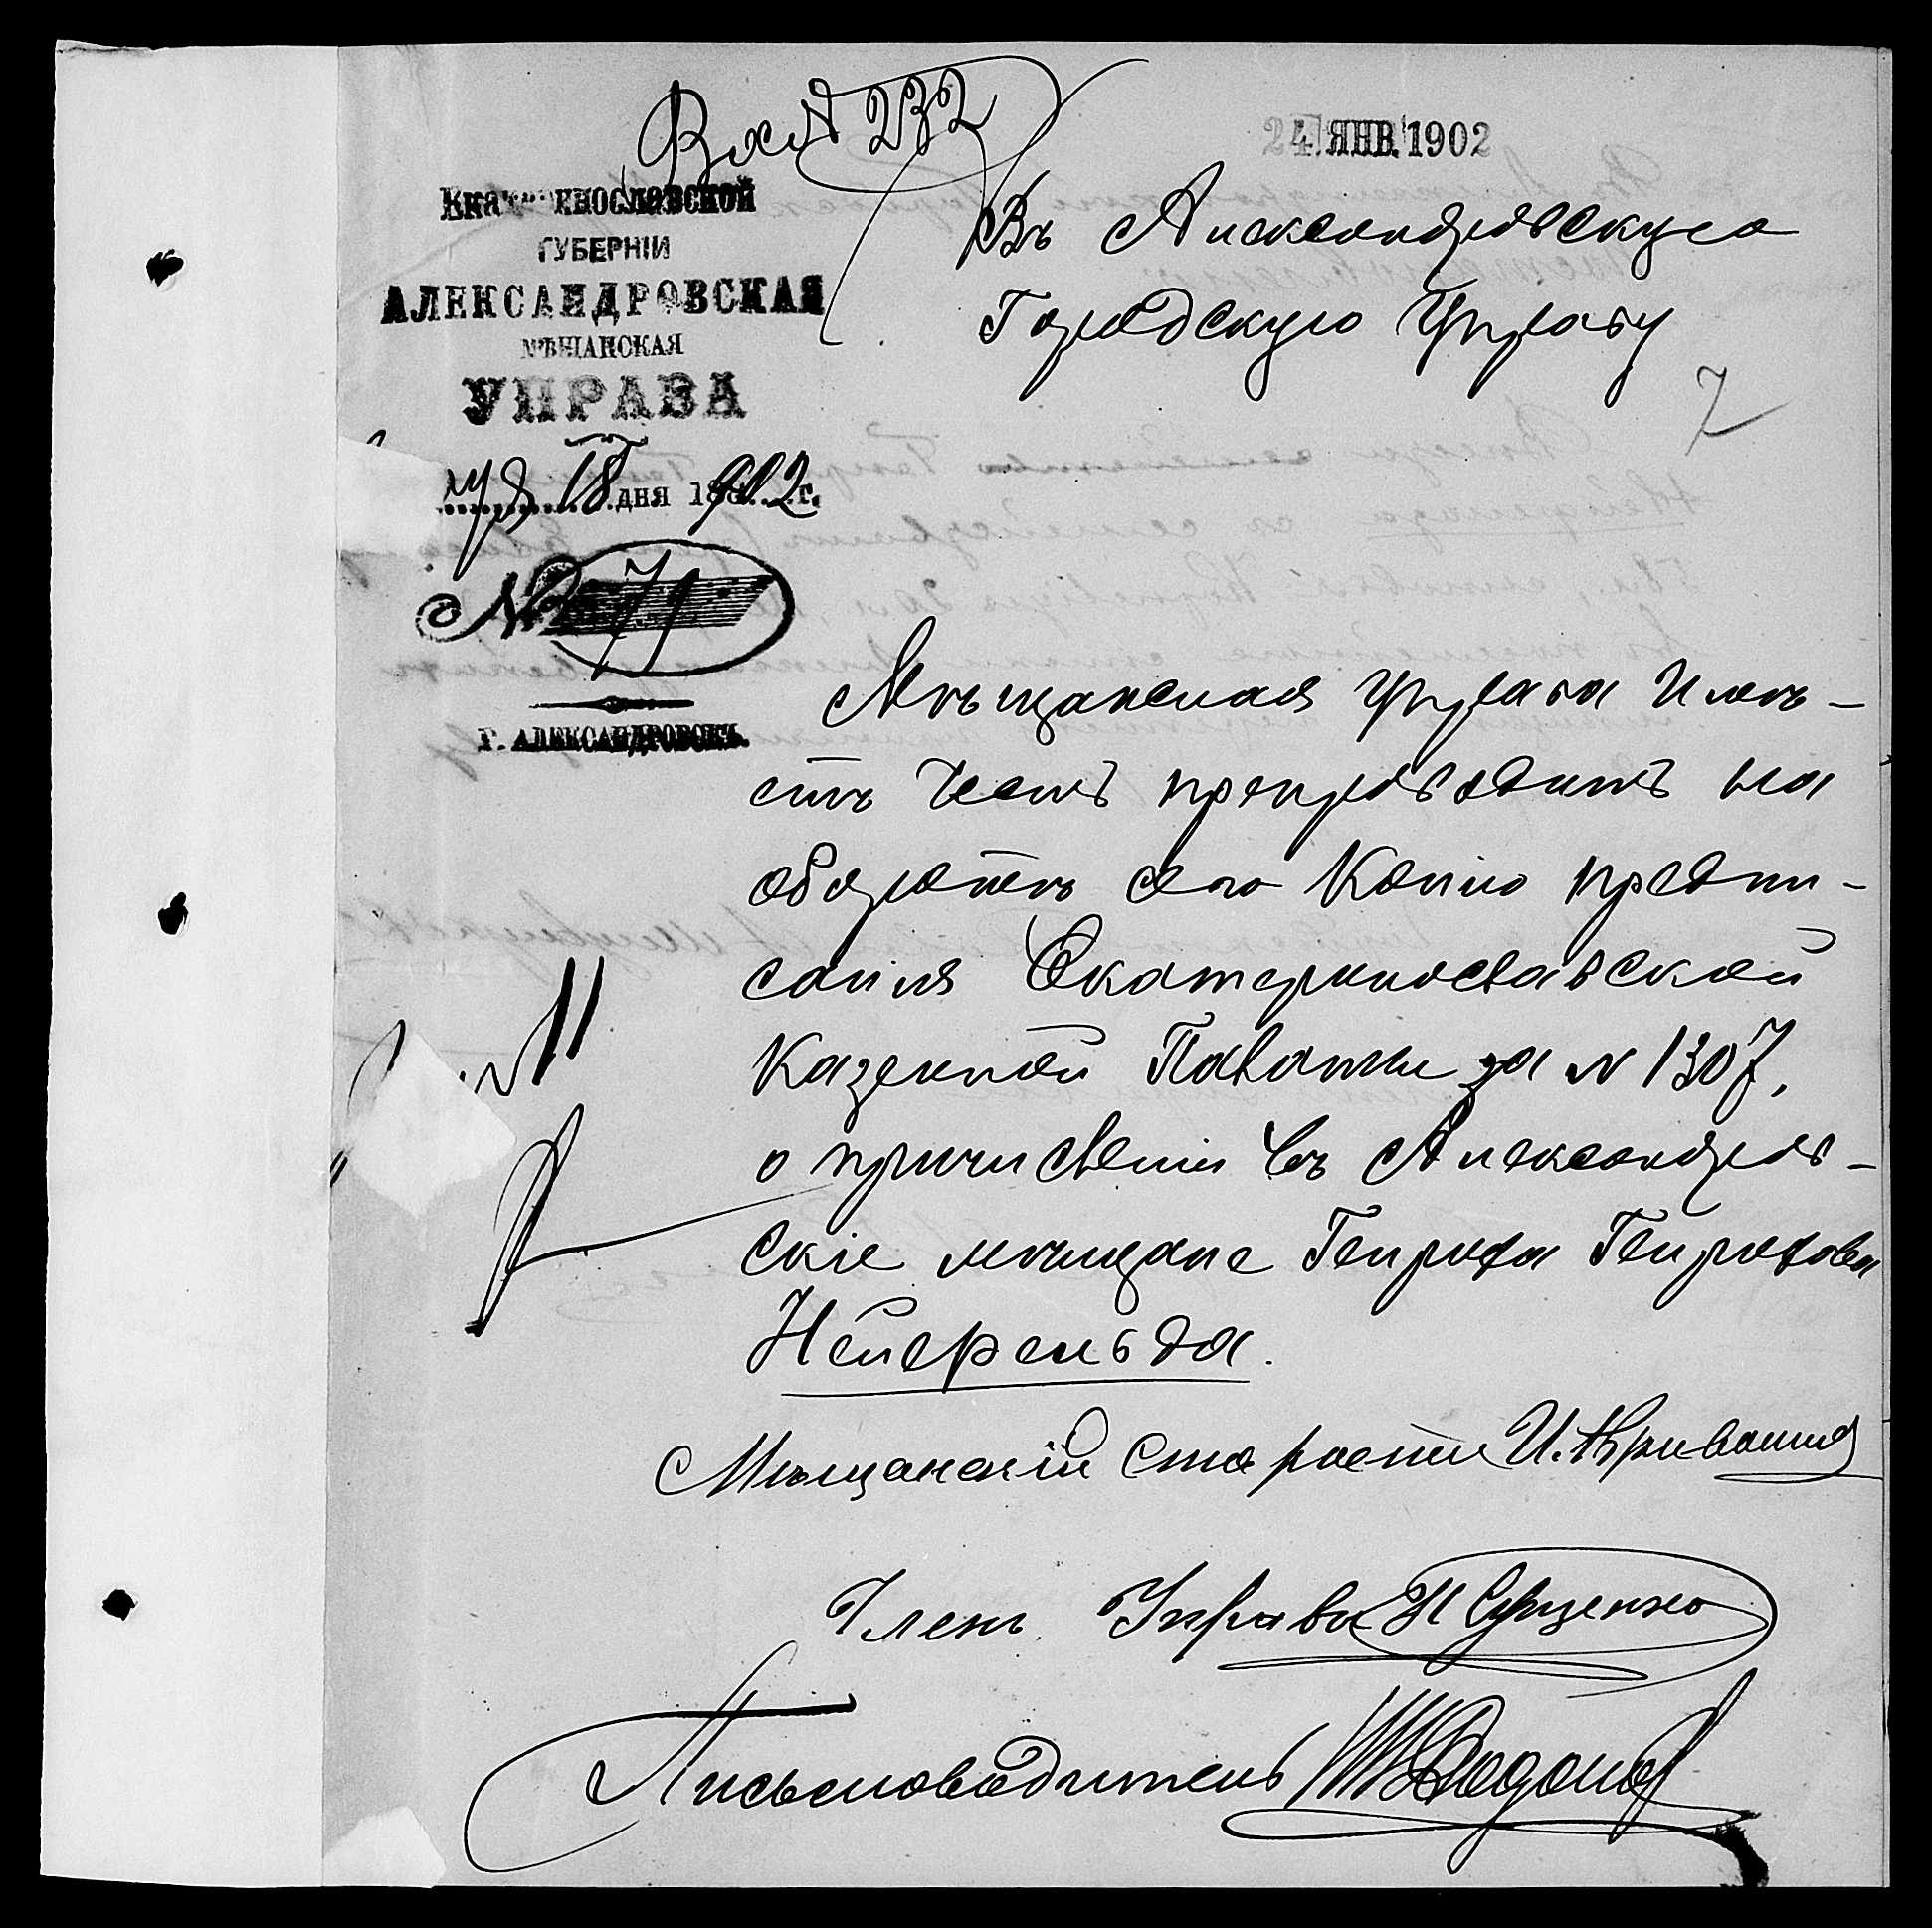 Вх № 232
24 ЯНВ. 1902
Екатеринославской
ГУБЕРНІИ
АЛЕКСАНДРОВСКАЯ
МѢЩАНСКАЯ
УПРАВА
18 дня 1902 г.
№ 71
Г. АЛЕКСАНДРОВСКЪ.
Въ Александровскую
Городскую Управу
7
Мѣщанская Управа имѣ-
етъ честь препроводить на
оборотѣ сего копію предпи-
санія Екатеринославской
Казенной Палаты за № 1307,
о причисленіи въ Александров-
скіе мѣщане Генриха Генрихова
Нейфельда.
Мѣщанскій Староста И.
Членъ Управы Н Сущенко
Письмоводитель